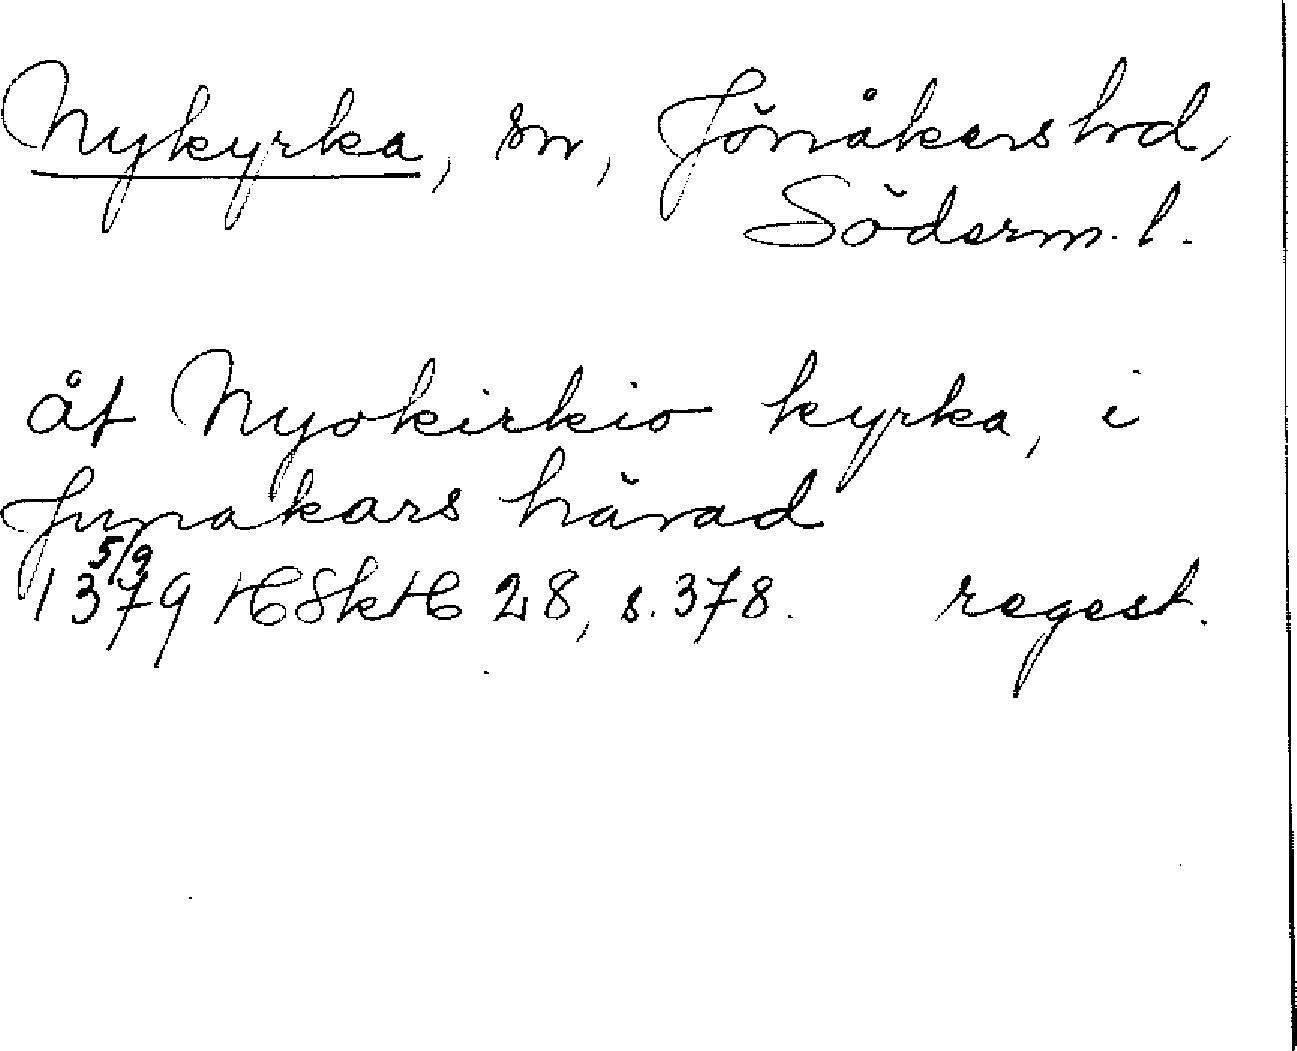 Nykyrka, sn, Jönåkers hd,
Söderm. l.
åt Nyokirkio kyrka, i
Junakars härad
5/9
1379 HSkH 28, s. 378. regest.